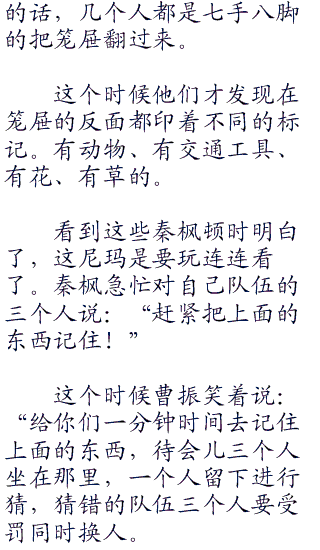 的话，几个人都是七手八脚
的把笼屉翻过来。
这个时候他们才发现在
笼屉的反面都印着不同的标
记。有动物、有交通工具、
有花、有草的。
看到这些秦枫顿时明白
了，这尼玛是要玩连连看
了。秦枫急忙对自己队伍的
三个人说：“赶紧把上面的
东西记住！”
这个时候曹振笑着说：
“给你们一分钟时间去记住
上面的东西，待会儿三个人
坐在那里，一个人留下进行
猜，猜错的队伍三个人要受
罚同时换人。